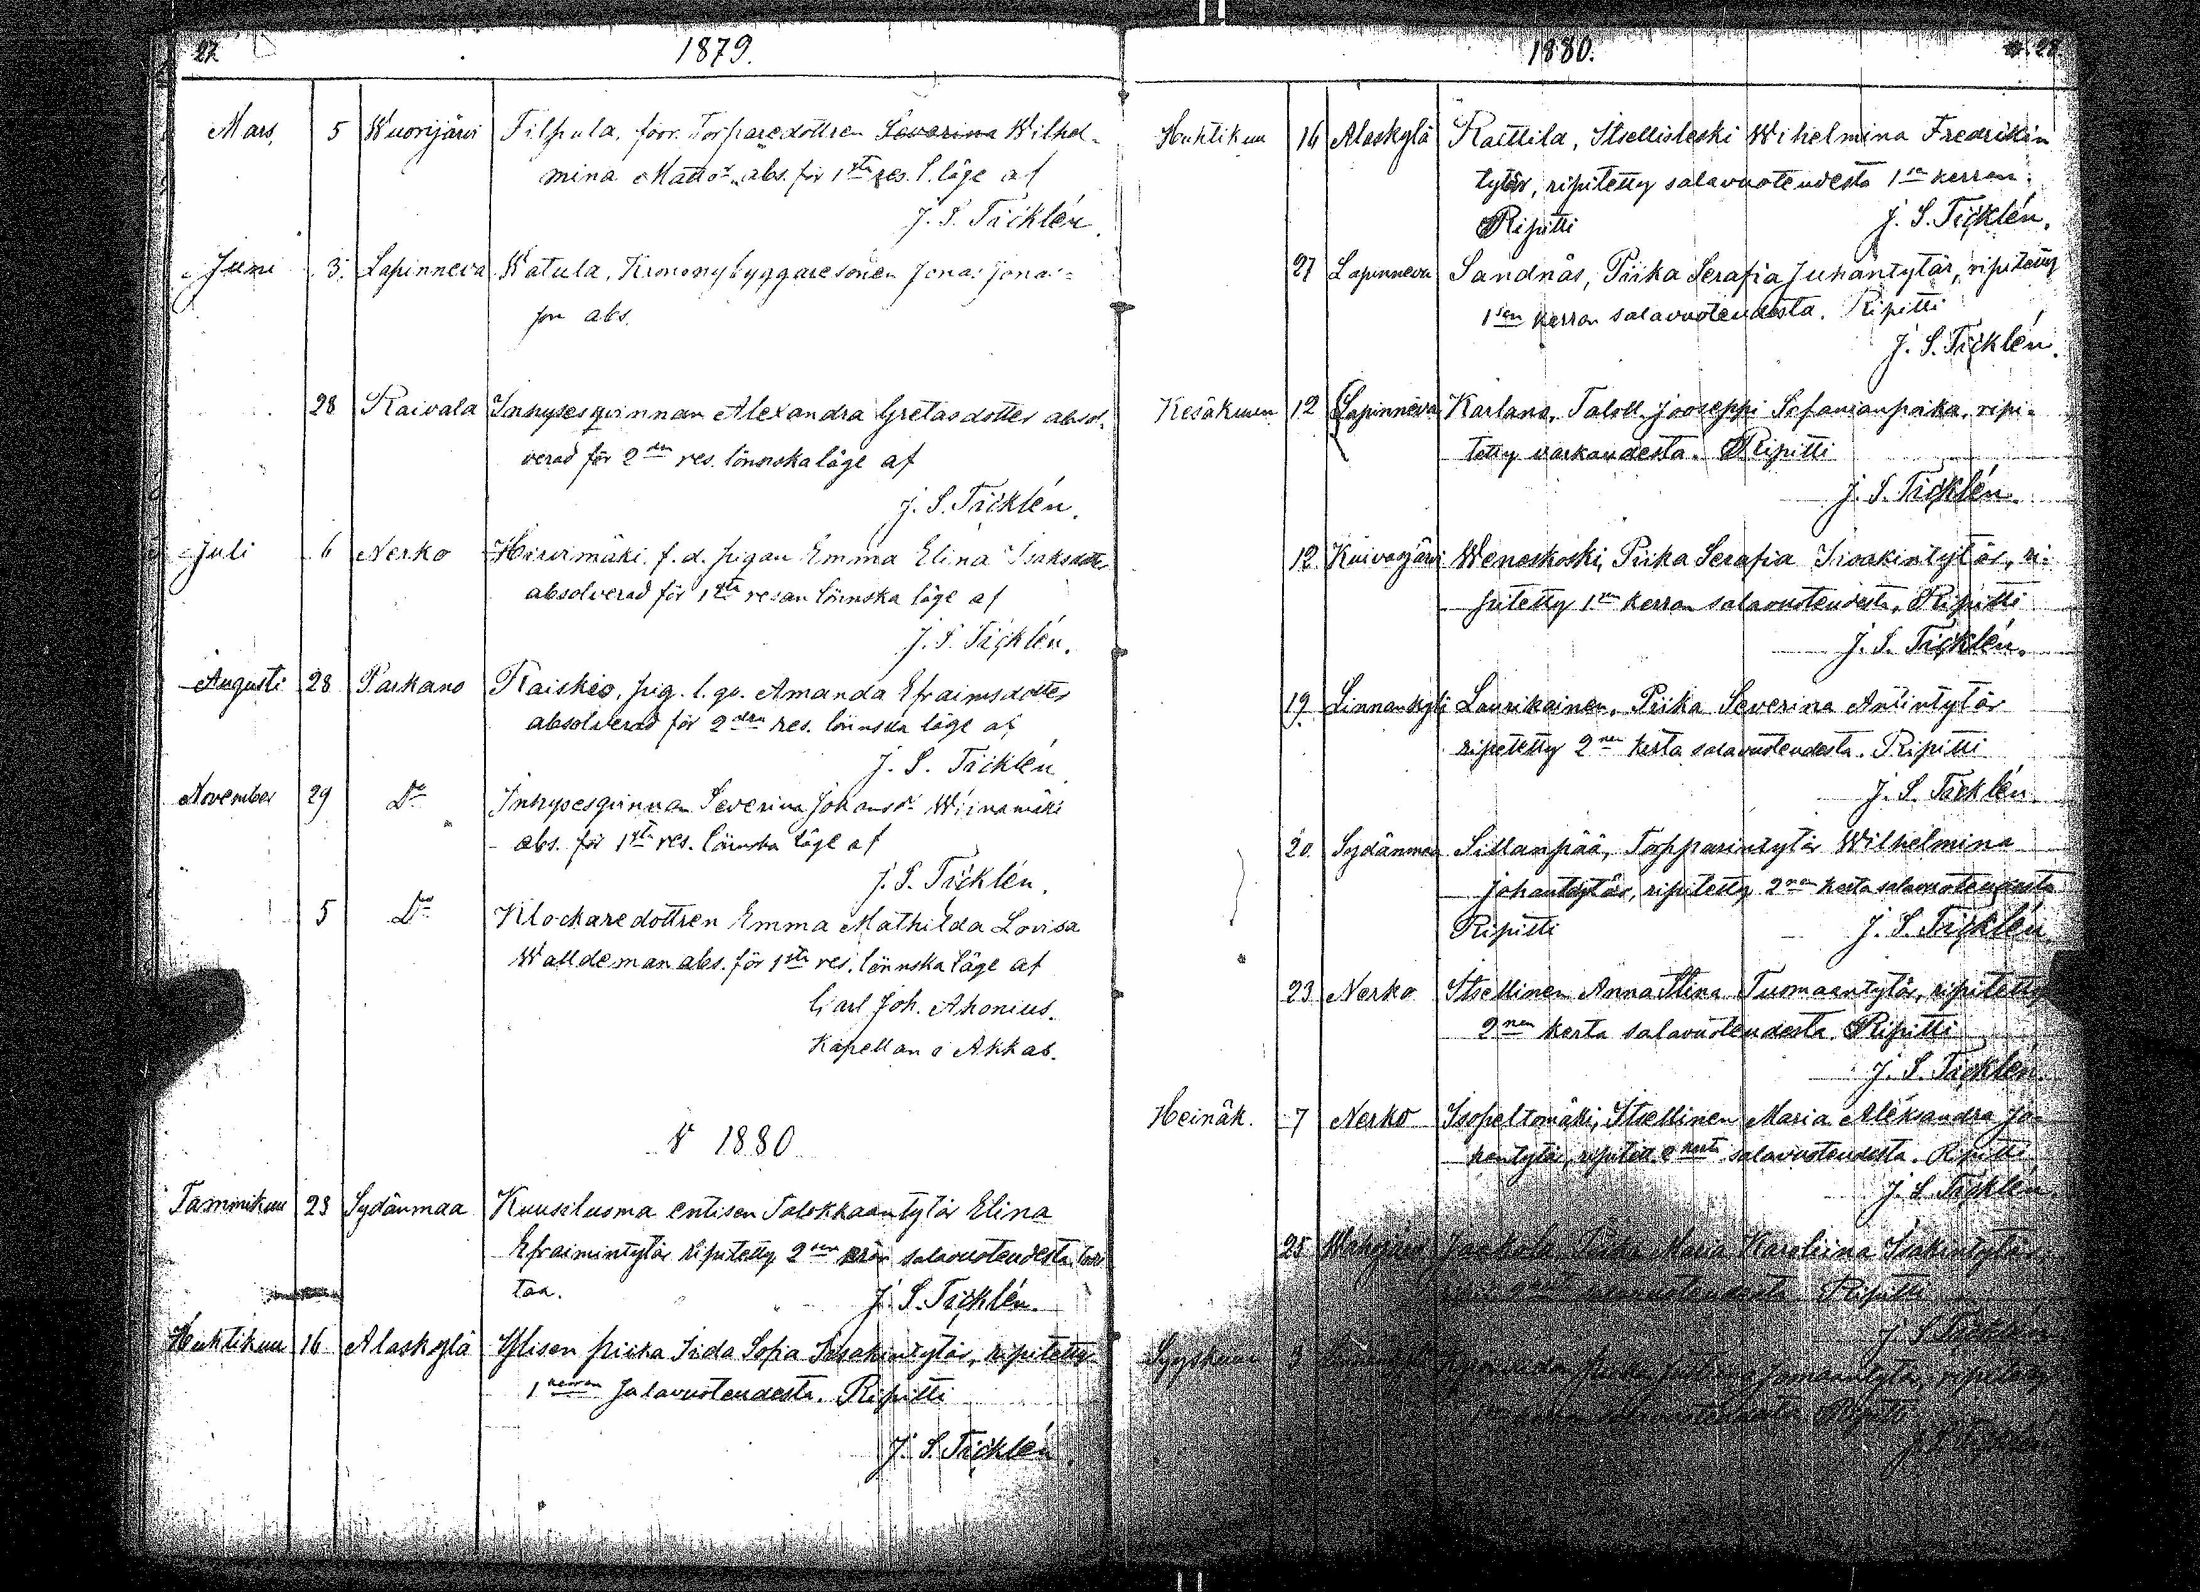 27
1879.
Mars, 5 Wuorijärvi Tilpula, förr. Torparedottren Severina Wilhel-
mina Matts dr abs. för 1sta res. l. läge af
J. S. Täcklén.
Juni 3. Lapinneva Watula, Krononybyggaresonen Jonas Jonas-
son abs.
28 Raivala Inhysesqvinnan Alexandra Gretasdotter absol-
verad för 2dra res. lönnska läge af
J. S. Täcklén.
Juli 6 Nerko Hirvimäki, f. d. pigan Emma Elina Isaksdotter
absolverad för 1sta resan lönnska läge af
J. S. Täcklén.
Augusti 28 Parkano Raiskio, pig. l. qv. Amanda Efraimsdotter
absolverad för 2dra res. lönnska läge af
J. S. Täcklén
November 29 Do Inhysesqvinnan Severina Johansdr Wiinamäki
abs. för 1sta res. lönnska läge af
J. S. Täcklén.
5 Do Klockaredottren Emma Mathilda Lovisa
Walldeman abs. för 1sta res. lönnska läge af
Carl Joh. Ahonius.
Kapellan i Akkas.
V 1880
Tammikuu 23 Sydänmaa Kuuseluoma entisen Talokkaantytär Elina
Efraimintytär ripitetty 2sen kerran salavuoteudesta
taa.
J. S. Täcklén.
Huhtikuu 16 Alaskylä Ylisen piika Iida Sofia Iisakintytär, ripitetty
1 kerran salavuoteudesta. Ripitti
J. S. Täcklén.
1880. 28
Huhtikuu 16 Alaskylä Raittila, Itsellisleski Wilhelmina Fredrikin
tytär, ripitetty salavuoteudesta 1sen kerran.
Ripitti J. S. Täcklén.
27 Lapinneva Sandnäs, Piika Serafia Juhantytär, ripitetty
1sen kerran salavuoteudesta. Ripitti
J. S. Täcklén.
Kesäkuun 12 Lapinneva Karlana, Taloll. Jooseppi Sefanianpoika, ripi-
tetty varkaudesta. Ripitti
J. S. Täcklén.
12 Kuivasjärvi Weneskoski, Piika Serafia Iisakintytär, ri-
pitetty 1sen kerran salavuoteudesta, Ripitti
J. S. Täcklén.
19. Linnankylä Laurikainen, Piika Severina Antintytär
ripitetty 2nen kerta salavuoteudesta. Ripitti
J. S. Täcklén.
20. Sydänmaa Sillanpää, Torpparintytär Wilhelmina
Johantytär, ripitetty 2nen kerta salavuoteudesta
Ripitti J. S. Täcklén
23 Nerko Itsellinen Anna Stina Tuomaantytär, ripitetty
2nen kerta salavuoteudesta. Ripitti
J. S. Täcklén.
Heinäk. 7 Nerko Isopeltomäki, Itsellinen Maria Aleksandra Jo-
hantytär, ripitett. 2 kerta salavuoteudesta. Ripitti
J. S. Täcklén.
25 Jaakola Piika Maria Karoliina Isakintytär,
salavuoteudesta Ripitti
J. S. Täcklén
Syyskuun 3 ripitetty
1 kerran salavuoteudesta Ripitti
J. S. Täcklén